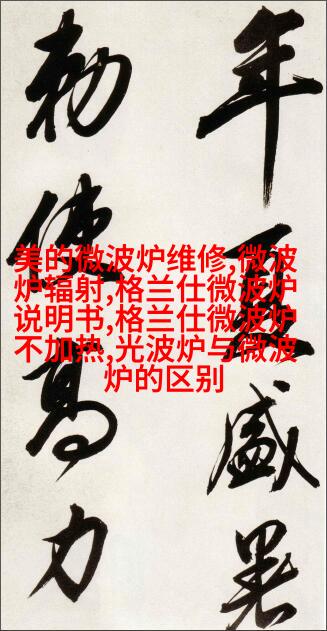 年盛暑
勅使高力
美的微波炉维修,微波
炉辐射,格兰仕微波炉
说明书,格兰仕微波炉
不加热,光波炉与微波
炉的区别